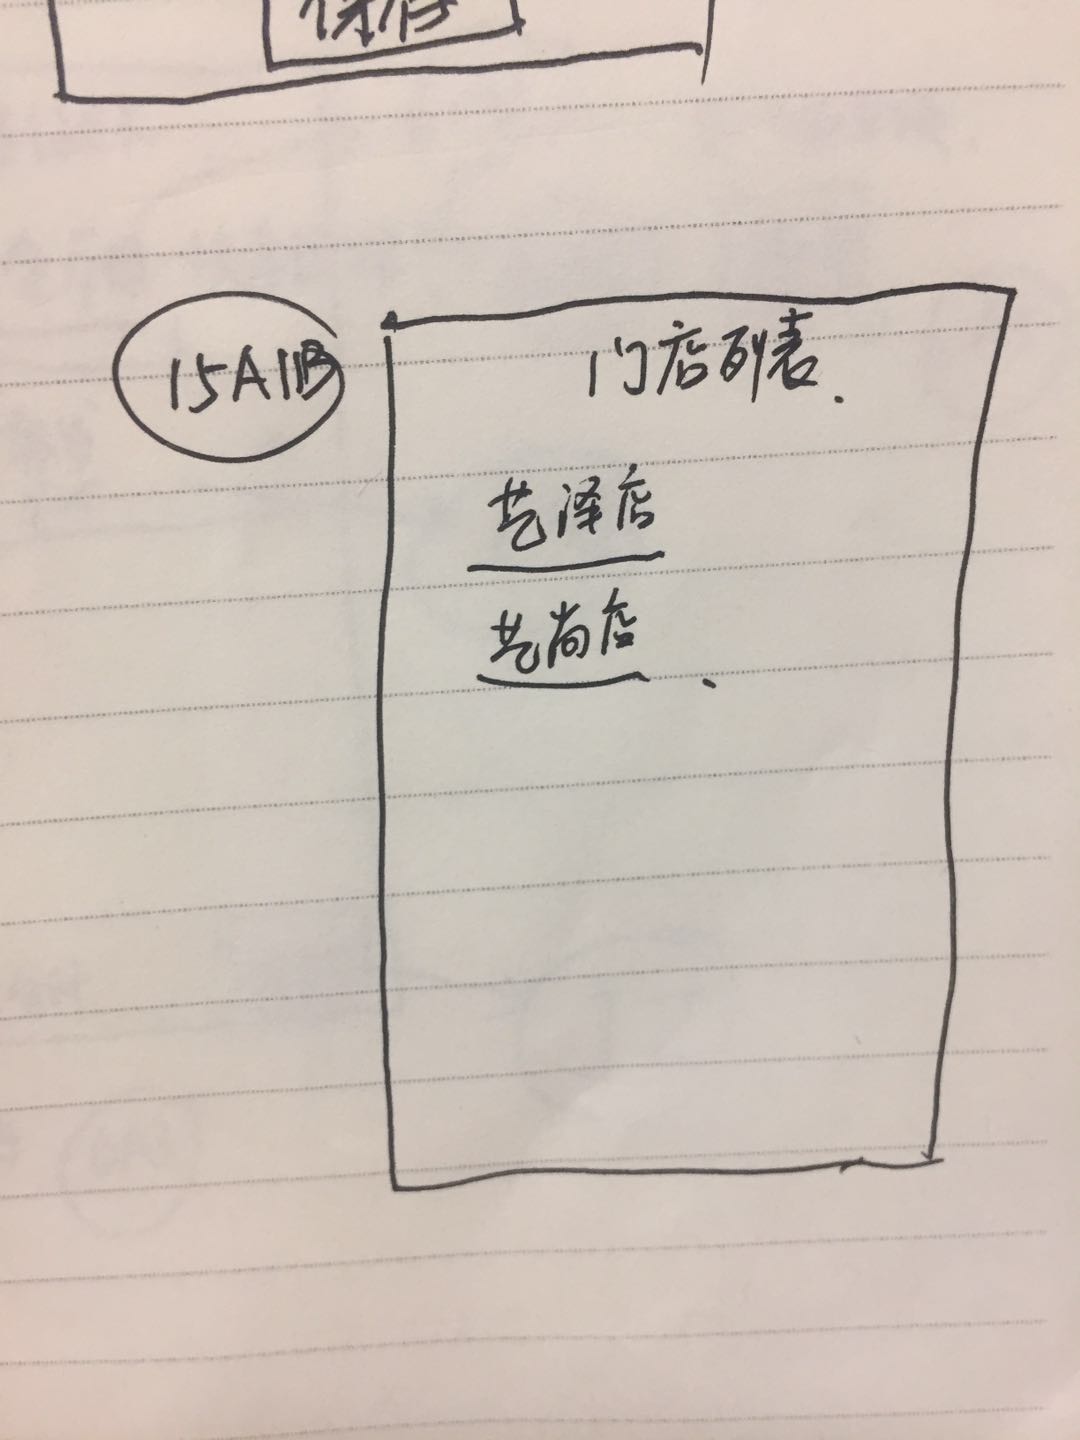 保存
15A11B
门店列表.
艺泽店
艺尚店.